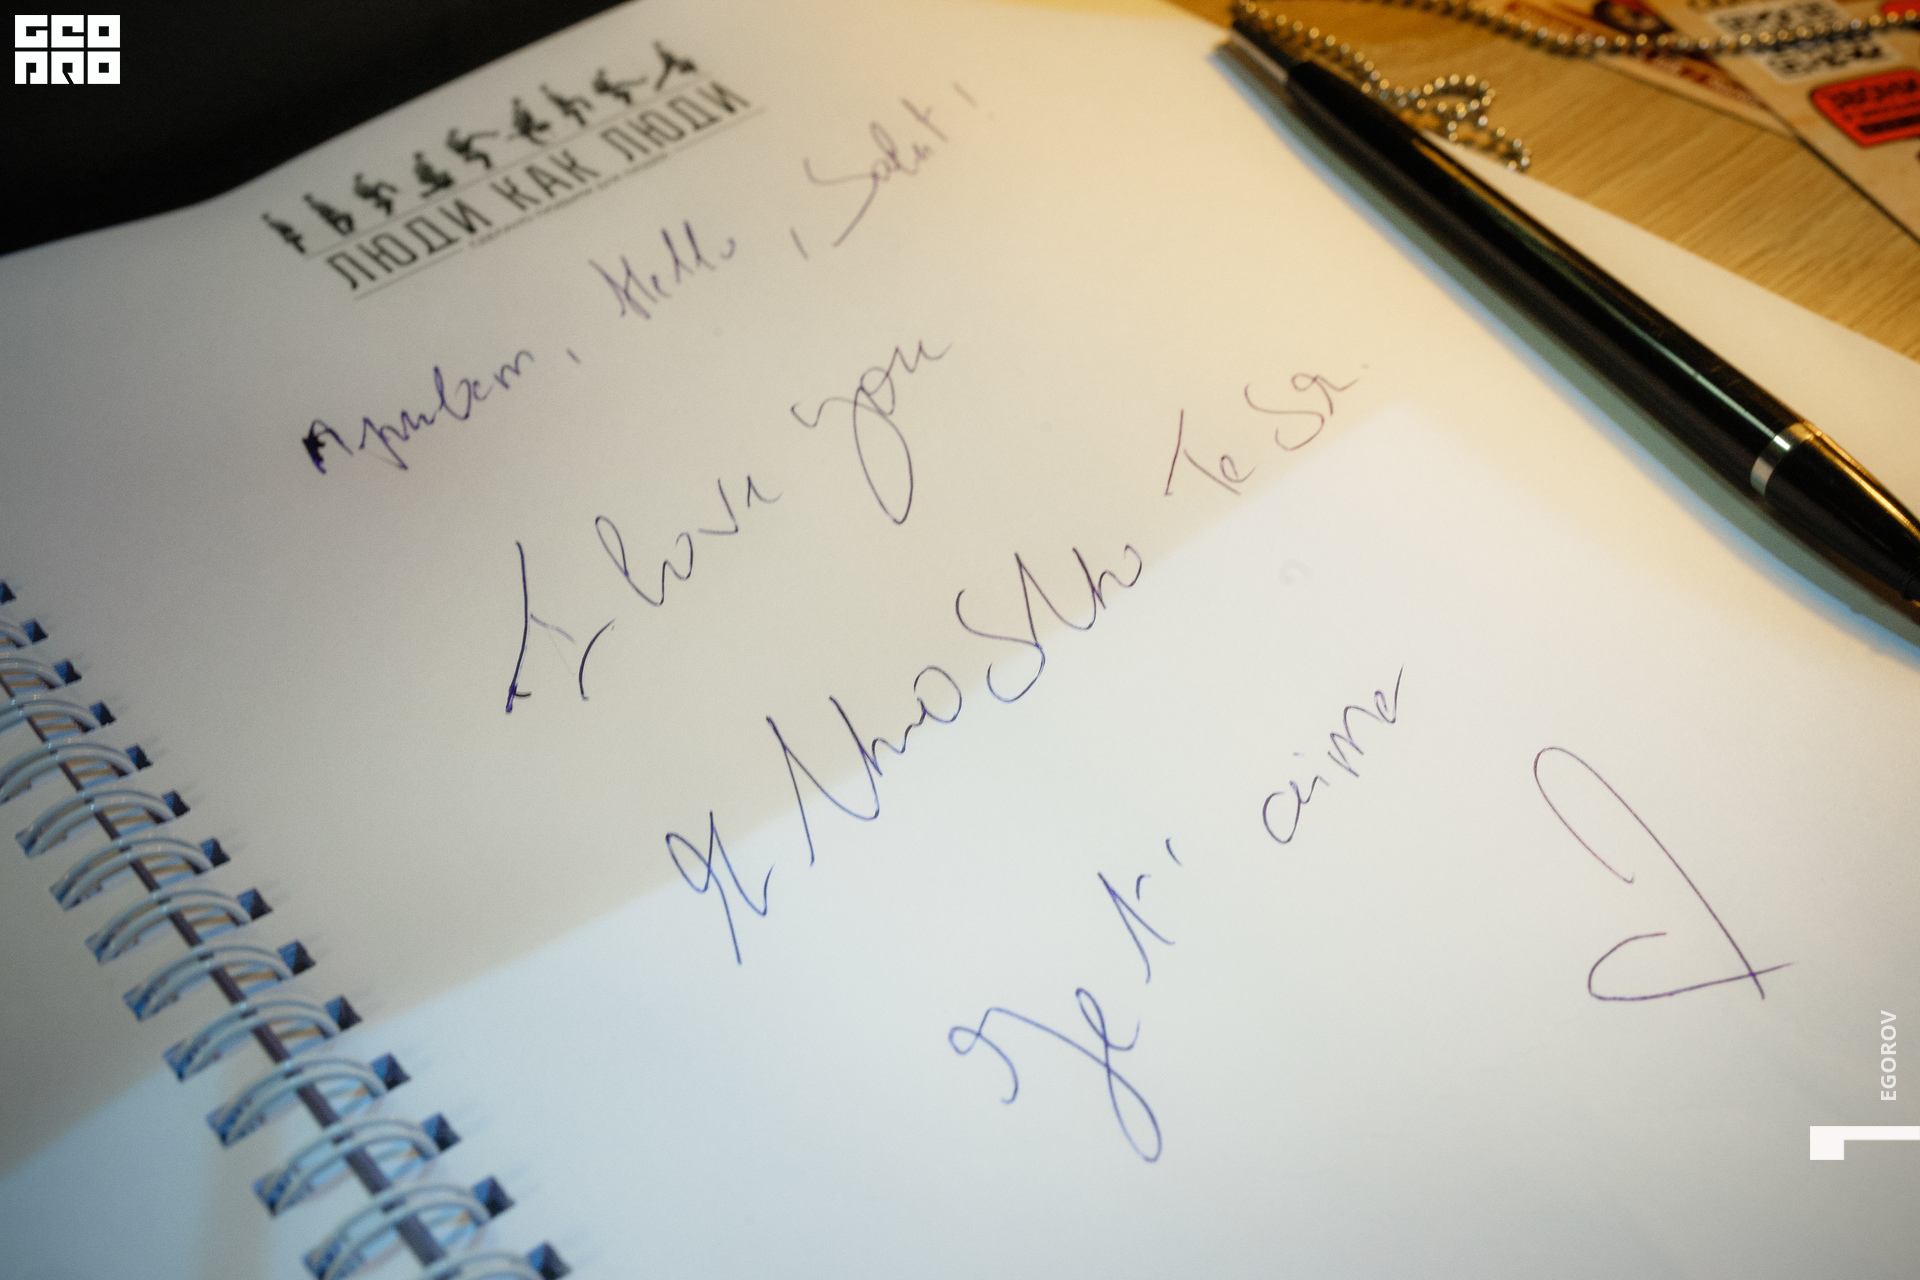 GEO
PRO
ЛЮДИ КАК ЛЮДИ
привет, Hello, Salut!
I Love you
Я люблю Тебя.
Je t'aime
EGOROV